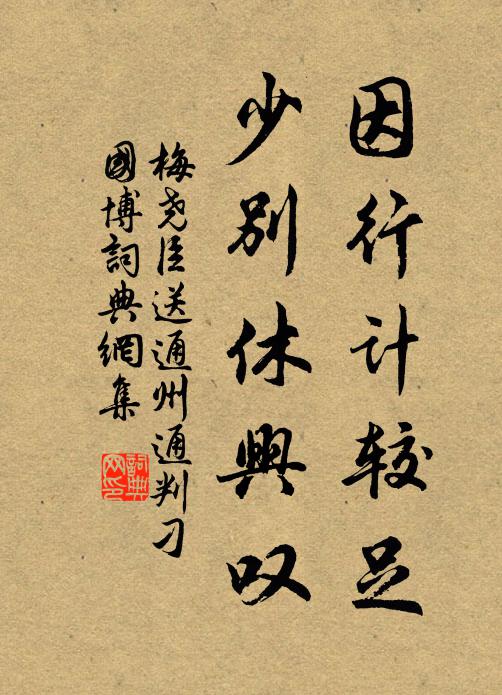 因行计较足
少别休興叹
梅尧臣送通州通判刁
國博詞典網集
詞典
网印